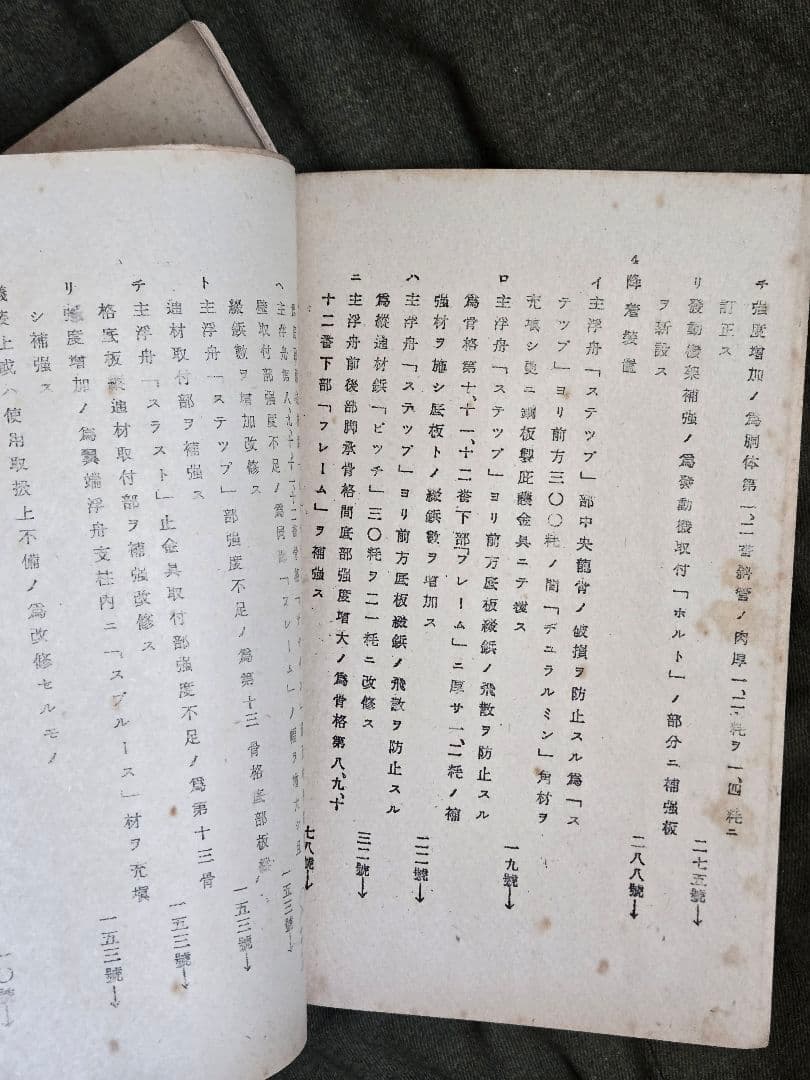 チ 強度増加ノ爲胴体第一、二番斜管ノ肉厚一、二粍ヲ一、四粍ニ
訂正ス
二七五號→
リ 發動機架補強ノ爲發動機取付「ホルト」ノ部分ニ補強板
ヲ新設ス
二八八號→
4 降着装置
イ 主浮舟「ステツプ」部中央龍骨ノ破損ヲ防止スル爲「ス
テツプ」ヨリ前方三〇〇粍ノ間「デユラルミン」角材ヲ
充填シ更ニ鋼板製庇護金具ニテ覆ス
一九號→
ロ 主浮舟「ステツプ」ヨリ前方底板綴鋲ノ飛散ヲ防止スル
爲骨格第十、十一、十二番下部「フレーム」ニ厚サ一、二粍ノ補
強材ヲ施シ底板トノ綴鋲數ヲ增加ス
一二一號→
ハ 主浮舟「ステツプ」ヨリ前方底板綴鋲ノ飛散ヲ防止スル
爲縱通材鋲「ピツチ」三〇粍ヲ二一粍ニ改修ス
三二號→
ニ 主浮舟前後部脚承骨格間底部強度增大ノ爲骨格第八、九、十
十二番下部「フレーム」ヲ補強ス
七八號→
壁取付部強度不足ノ爲同部「フレーム」ノ幅ヲ
綴鋲數ヲ增加改修ス
一五三號→
ト 主浮舟「ステツプ」部強度不足ノ爲第十三骨格底部板綴
一五三號→
通材取付部ヲ補強ス
チ 主浮舟「スラスト」止金具取付部強度不足ノ爲第十三骨
格底板縱通材取付部ヲ補強改修ス
一五三號→
リ 強度增加ノ爲翼端浮舟支柱内ニ「スプルース」材ヲ充塡
シ補強ス
一五三號→
艤装上或ハ使用取扱上不備ノ爲改修セルモノ